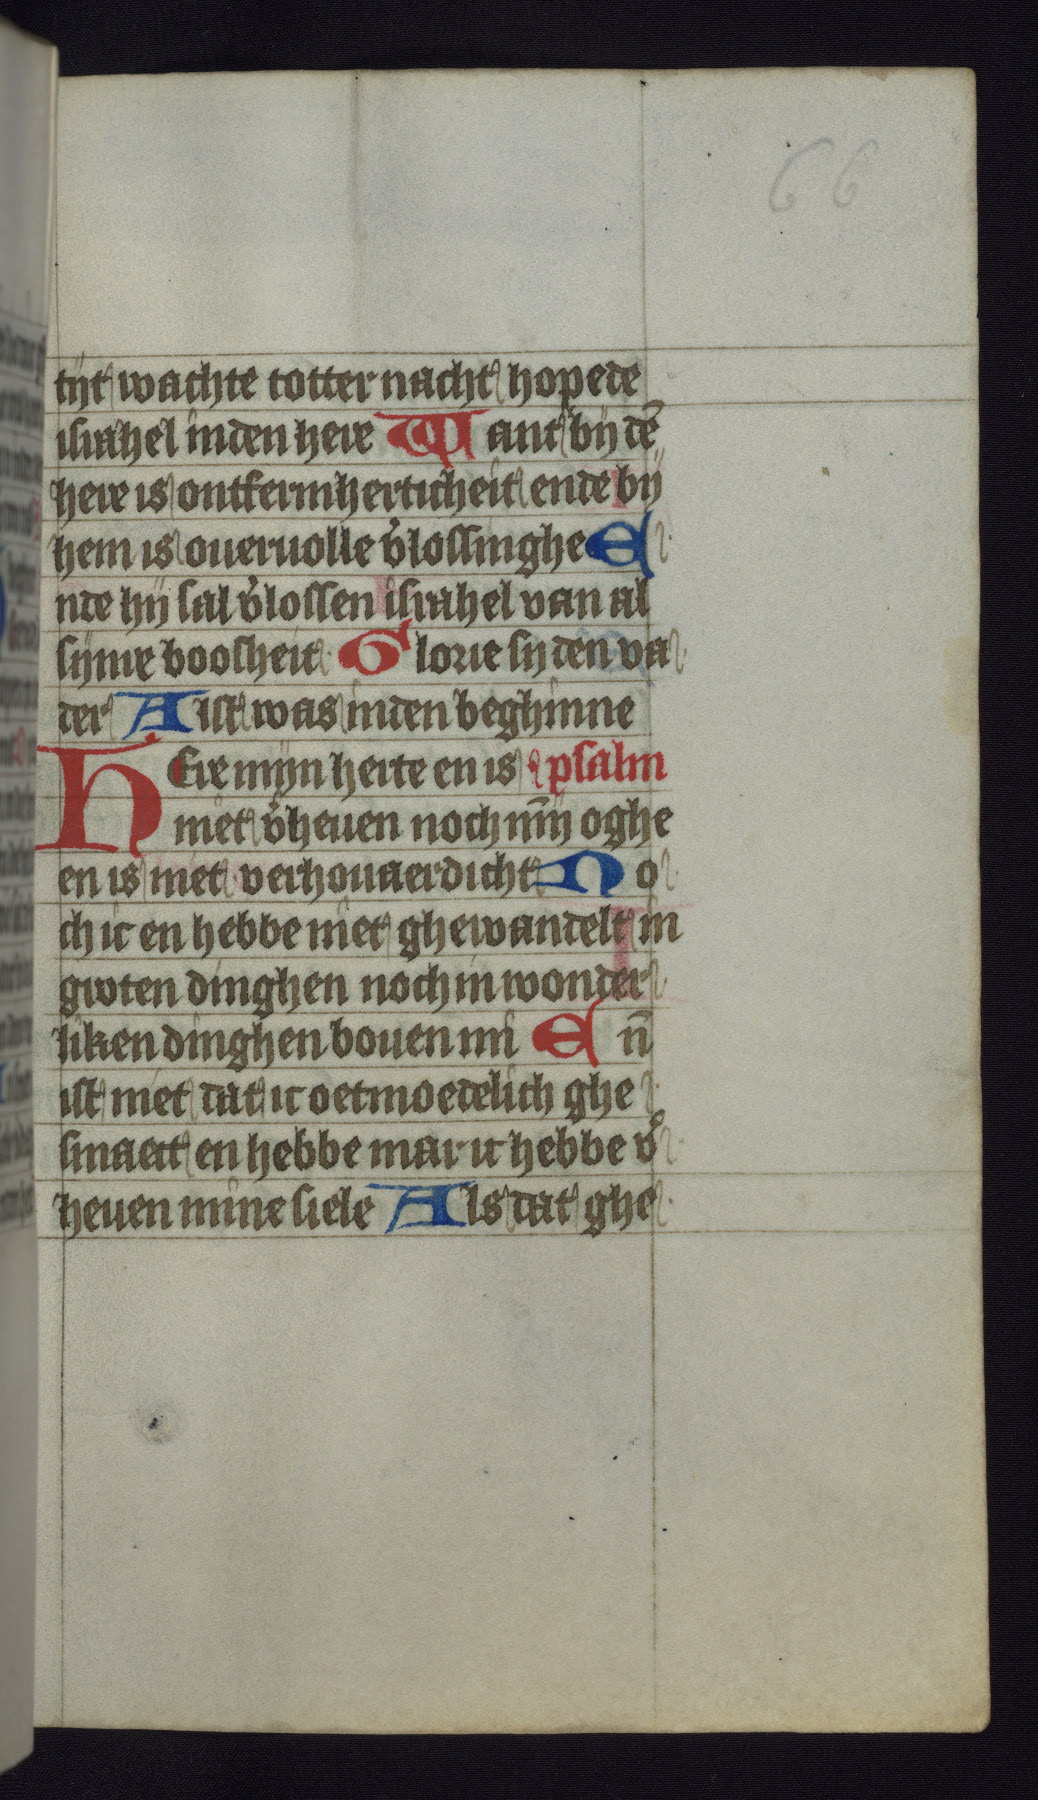 66
tijt wachte totter nacht hopede
israhel inden here Want bij dē
here is ontfermherticheit ende bij
hem is oueruolle v̾lossinghe E
nde hij sal v̾lossen israhel van al
sijnre boosheit Glorie sij den va
der Alst was inden beghinne
HEre mijn herte en is psalm
niet v̾heuen noch mīn oghe
en is niet verhouaerdicht No
ch ic en hebbe niet ghewandelt in
groten dinghen noch in wonder
liken dinghen bouen mi En̄
ist niet dat ic oetmoedelich ghe
smaect en hebbe mar ic hebbe v̾
heuen mine siele Als dat ghe